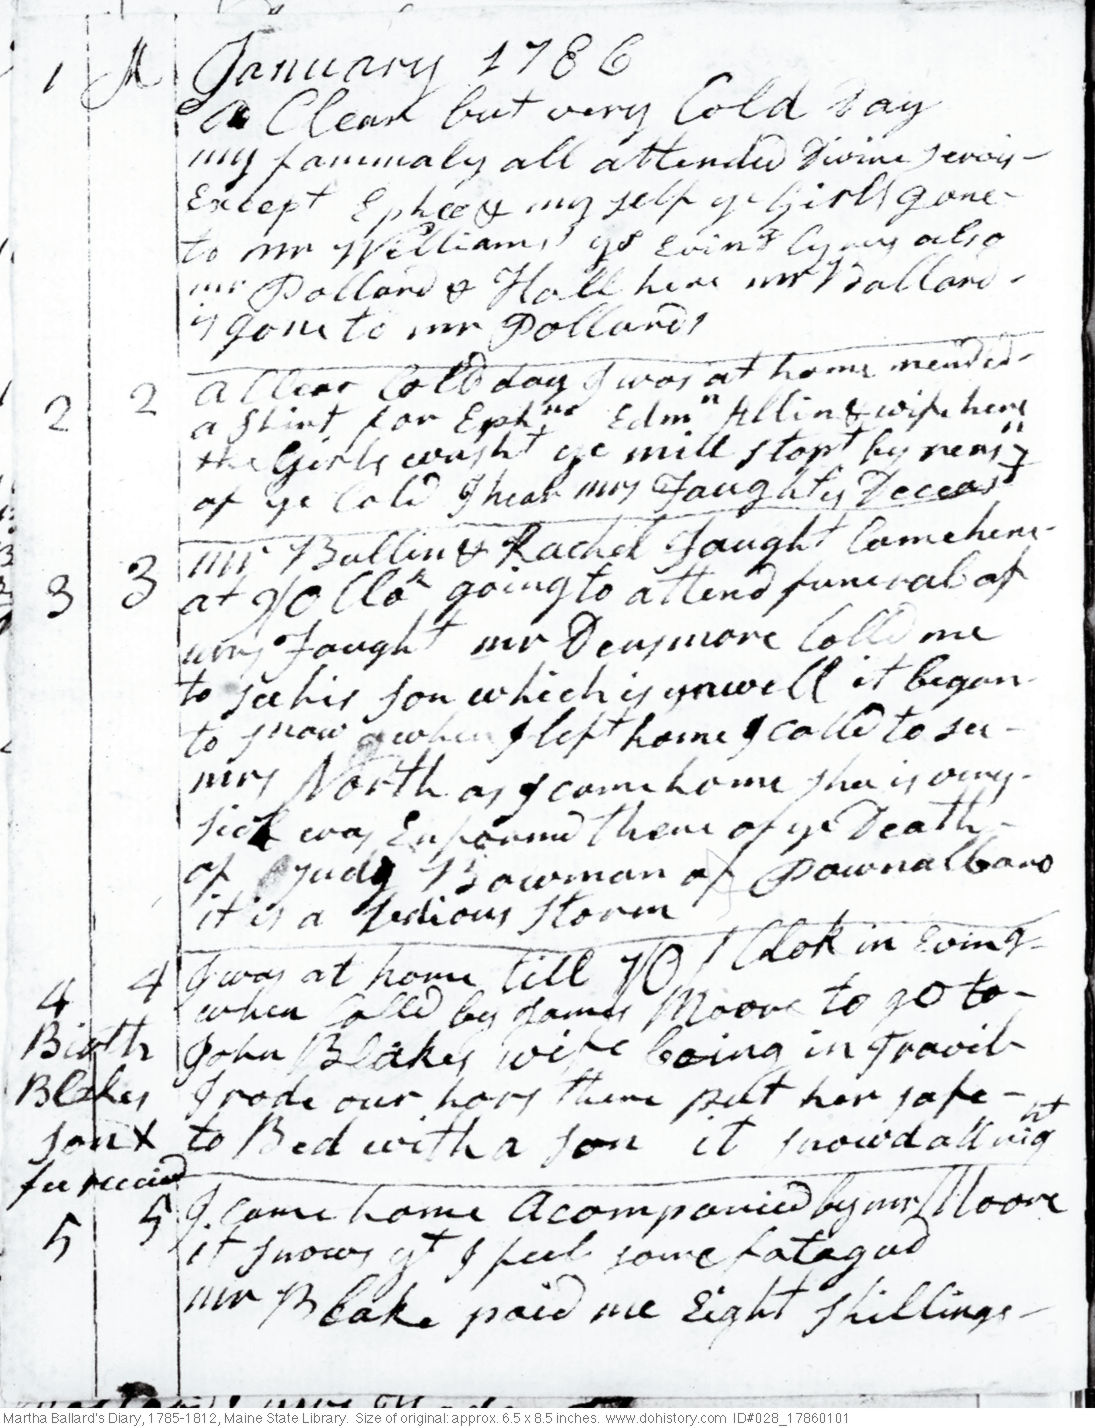 1 A January 1786
a Clear but very Cold Day
my fammaly all attended Divine servis
Except Ephm & my self ye Girls gone
to mr Williams's ye Evin'g Cyrus also
mr Pollard & Hall here mr Ballard
is gone to mr Pollards
2 2 a Clear Cold day I was at home mended
a Shirt for Ephm Edmn Allin & wife here
the Girls washt ye mill stopt by rens
of ye Cold I hear mrs Faught is Deceast
3 3 mr Bullin & Rachel Faught Came here
at 10 Clok going to attend funeral of
mrs Faught mr Densmore Calld me
to see his son which is unwell it began
to snow when I left home I calld to see
mrs North as I came home she is very
sick was Enformd there of ye Death
of Judg Bowman of Pownalboro
it is a tedious storm
4 4 I was at home till 10 Clok in Evng
when Calld by James Moore to go to
Birth John Blakes wife being in Travil
Blakes I rode our hors there put her safe
son X to Bed with a son it snowd all night
fee receivd
5 5 I came home acompanied by mr Moore
it snows yt I feel some fatagud
mr Blake paid me Eight shillings
Martha Ballard's Diary, 1785-1812, Maine State Library. Size of original: approx. 6.5 x 8.5 inches. www.dohistory.com ID#028_17860101